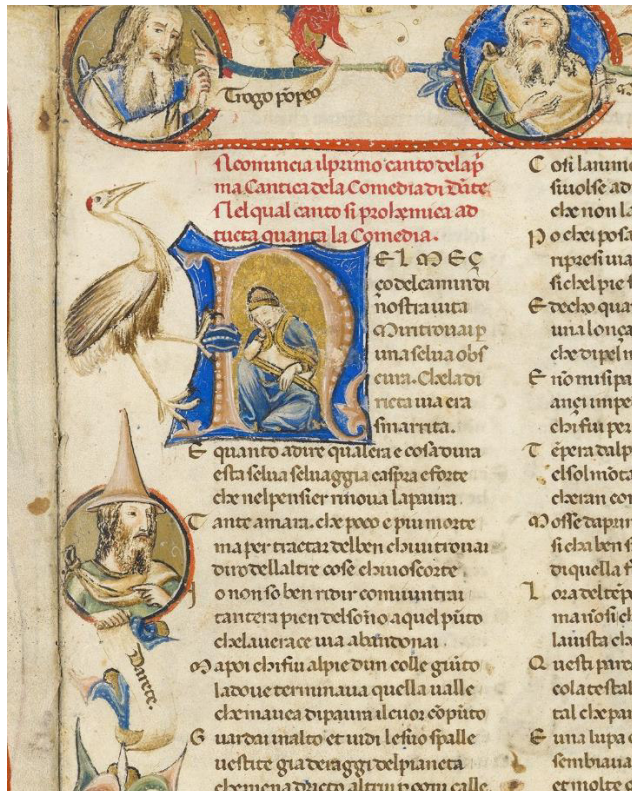 Trogo pōpeo
Ncomincia il primo canto dela p̄
ma Cantica dela Comedia di Dāte
Nel qual canto si prohemica ad
tucta quanta la Comedia.
NEL MEÇ
ço del camin di
nostra uita
Mi ritrouai p̱
una selua obs
cura. Chela di
ricta uia era
smarrita.
E quanto a dire qual era e cosa dura
esta selua seluaggia e aspra e forte
che nel pensier rinoua la paura.
Tante amara. che poco e piu morte
ma per tractar del ben chui ui trouai
diro dellaltre cose chi uo scorte.
Io non so ben ridir com ui intrai
tantera pien del sōno a quel pūto
che la uerace uia abandonai.
Ma poi chi fui al pie dun colle giūto
la doue terminaua quella ualle
che mauea di paura il cuor cōpūto
Guardai in alto et uidi le suo spalle
uestite gia de raggi del pianeta
che mena dricto altrui p̱ ogni calle.
Darete.
Cosi lanimo
si uolse ad
che non la
Po chei posa
ripresi uia
si chel pie
Et echo qua
una lonça
che di pel
E nō mi si pa
ançi impe
chi fui per
Tēpera dal p
el sol mōta
cheran con
Mosse da prim
si cha ben s
di quella f
Lora del tēp
ma nō si ch
la uista ch
Questi pare
cō la test al
tal che par
E una lupa c
sembiaua
et molte